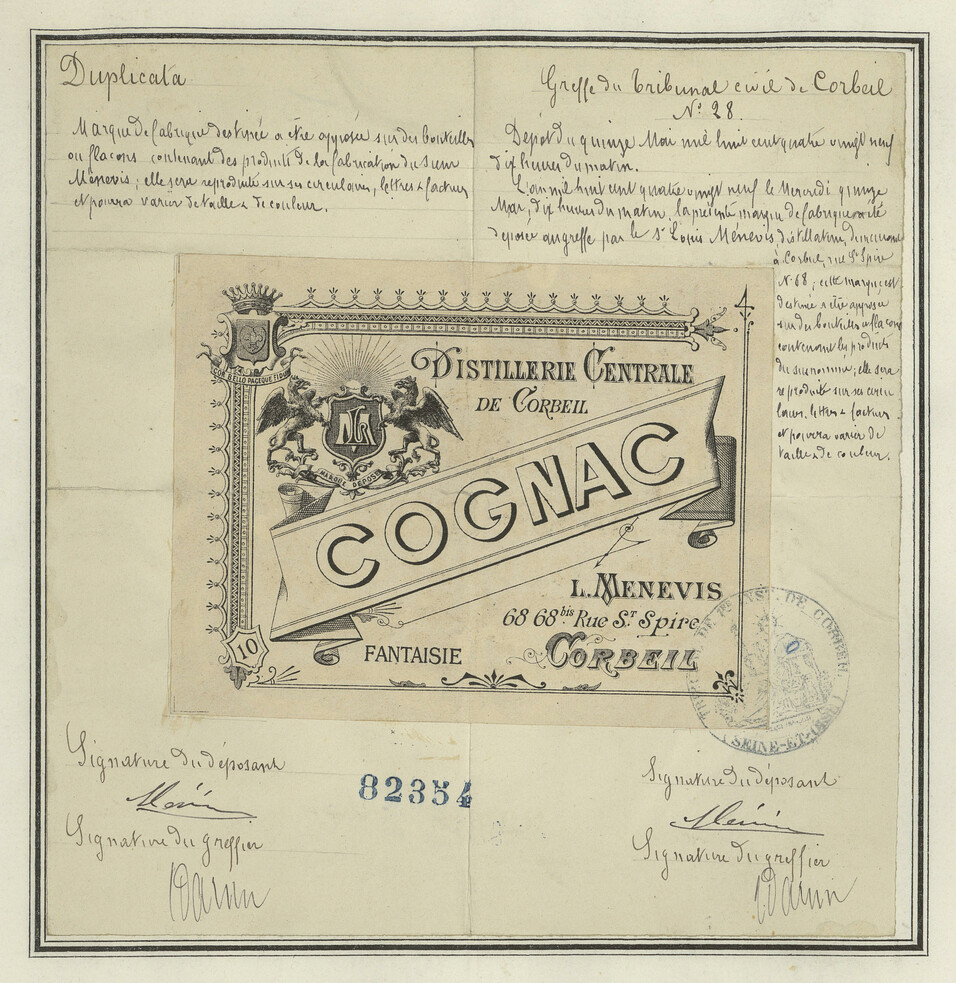 Duplicata
Marque de fabrique destinée a être apposée sur des bouteilles
ou flacons contenant des produits de la fabrication du sieur
Ménevis; elle sera reproduite sur ses circulaires, lettres & factures
et pourra varier de taille & de couleur.
Greffe du Tribunal civil de Corbeil
No. 28
Dépôt du quinze Mai mil huit cent quatre vingt neuf
dix heures du matin.
L'an mil huit cent quatre vingt neuf le Mercredi quinze
Mai, dix heures du matin, la présente marque de fabrique a été
déposée au greffe par le Sr Louis Ménevis, distillateur, demeurant
à Corbeil, rue St Spire
No. 68; cette marque est
destinée a être apposée
sur des bouteilles ou flacons
contenant les produits
du susnommé; elle sera
reproduite sur ses circu
laires, lettres & factures
et pourra varier de
taille & de couleur.
COR BELLO PACEQUE FIDUM
DISTILLERIE CENTRALE
DE CORBEIL
MARQUE DÉPOSÉE
COGNAC
L. MENEVIS
68 68bis Rue ST Spire
CORBEIL
10
FANTAISIE
DE CORBEIL
SEINE-ET-OISE
Signature du déposant
Signature du greffier
82354
Signature du déposant
Signature du greffier